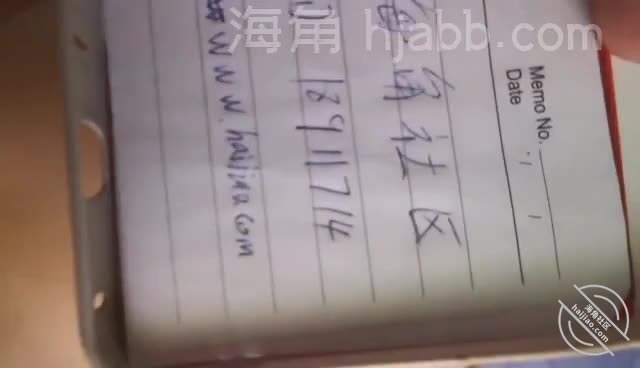 海角 hjabb.com
Memo No.
Date / /
海角社区
18911714
www.haijiao.com
海角社区
haijiao.com